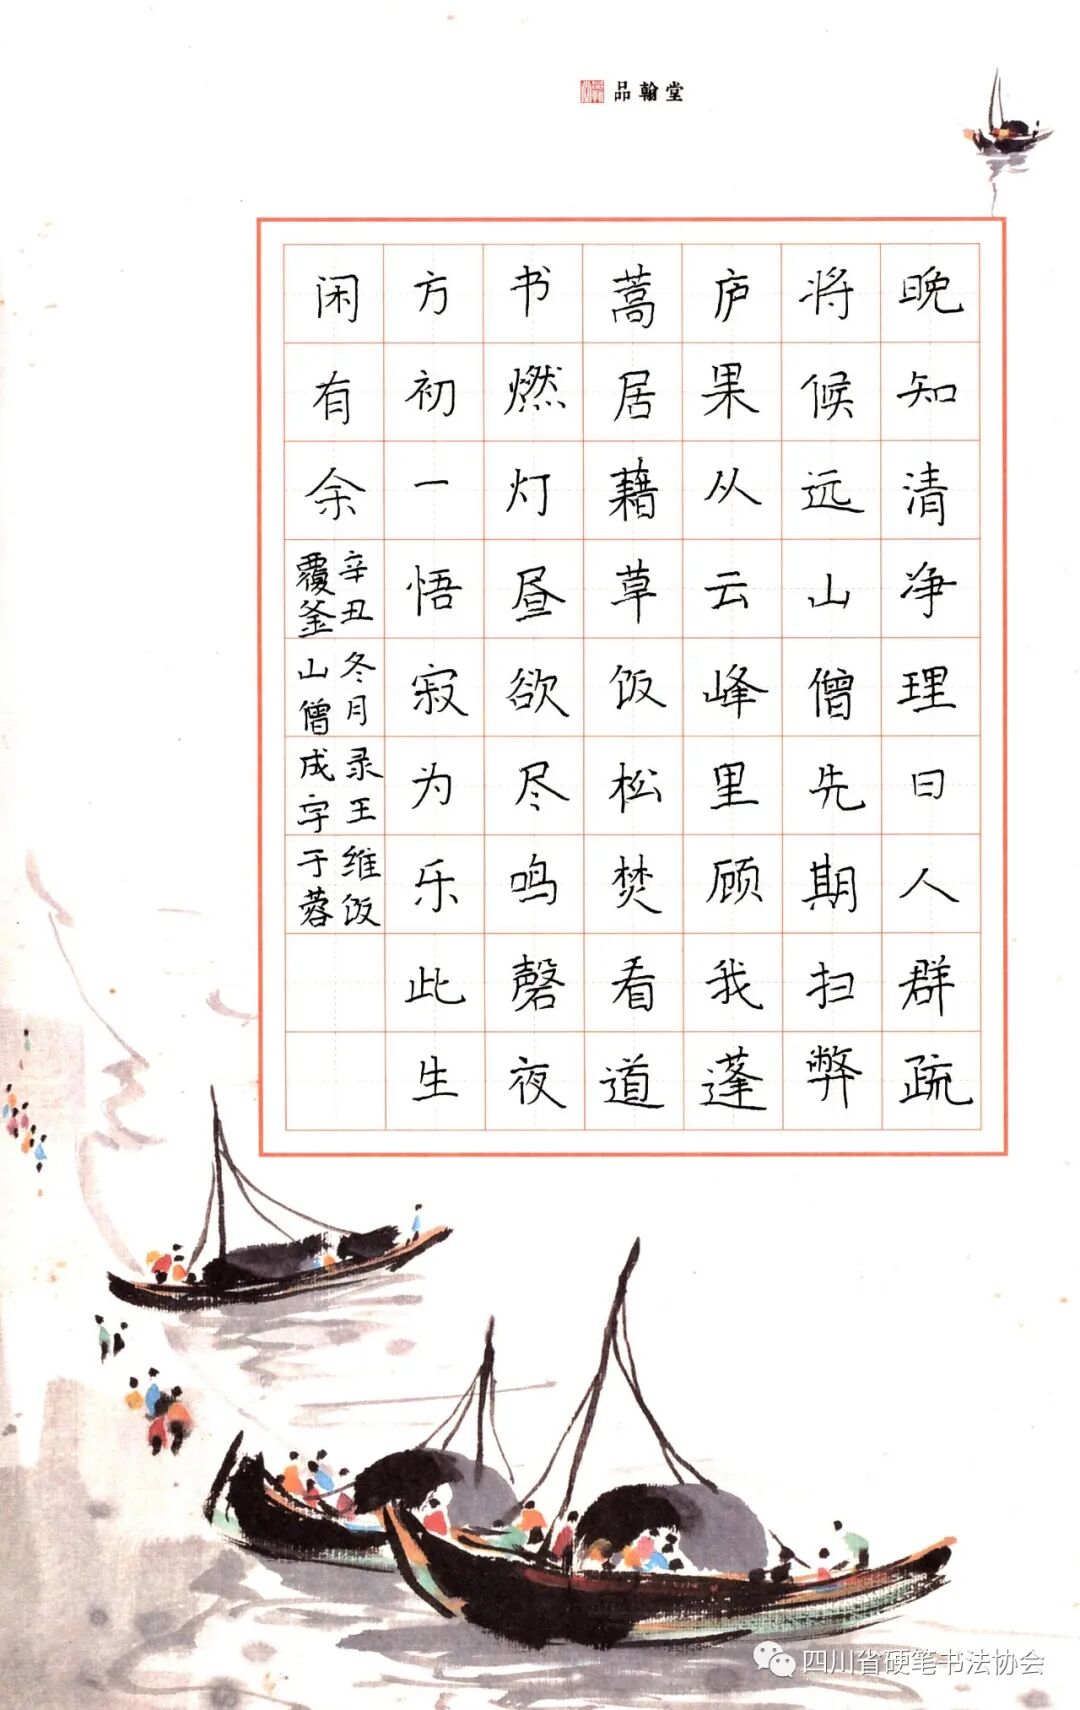 品翰堂
晚知清净理曰人群疏
将候远山僧先期扫弊
庐果从云峰里顾我蓬
蒿居藉草饭松焚看道
书燃灯昼欲尽鸣磬夜
方初一悟寂为乐此生
闲有余
辛丑冬月录王维饭
覆釜山僧成字于蓉
四川省硬笔书法协会